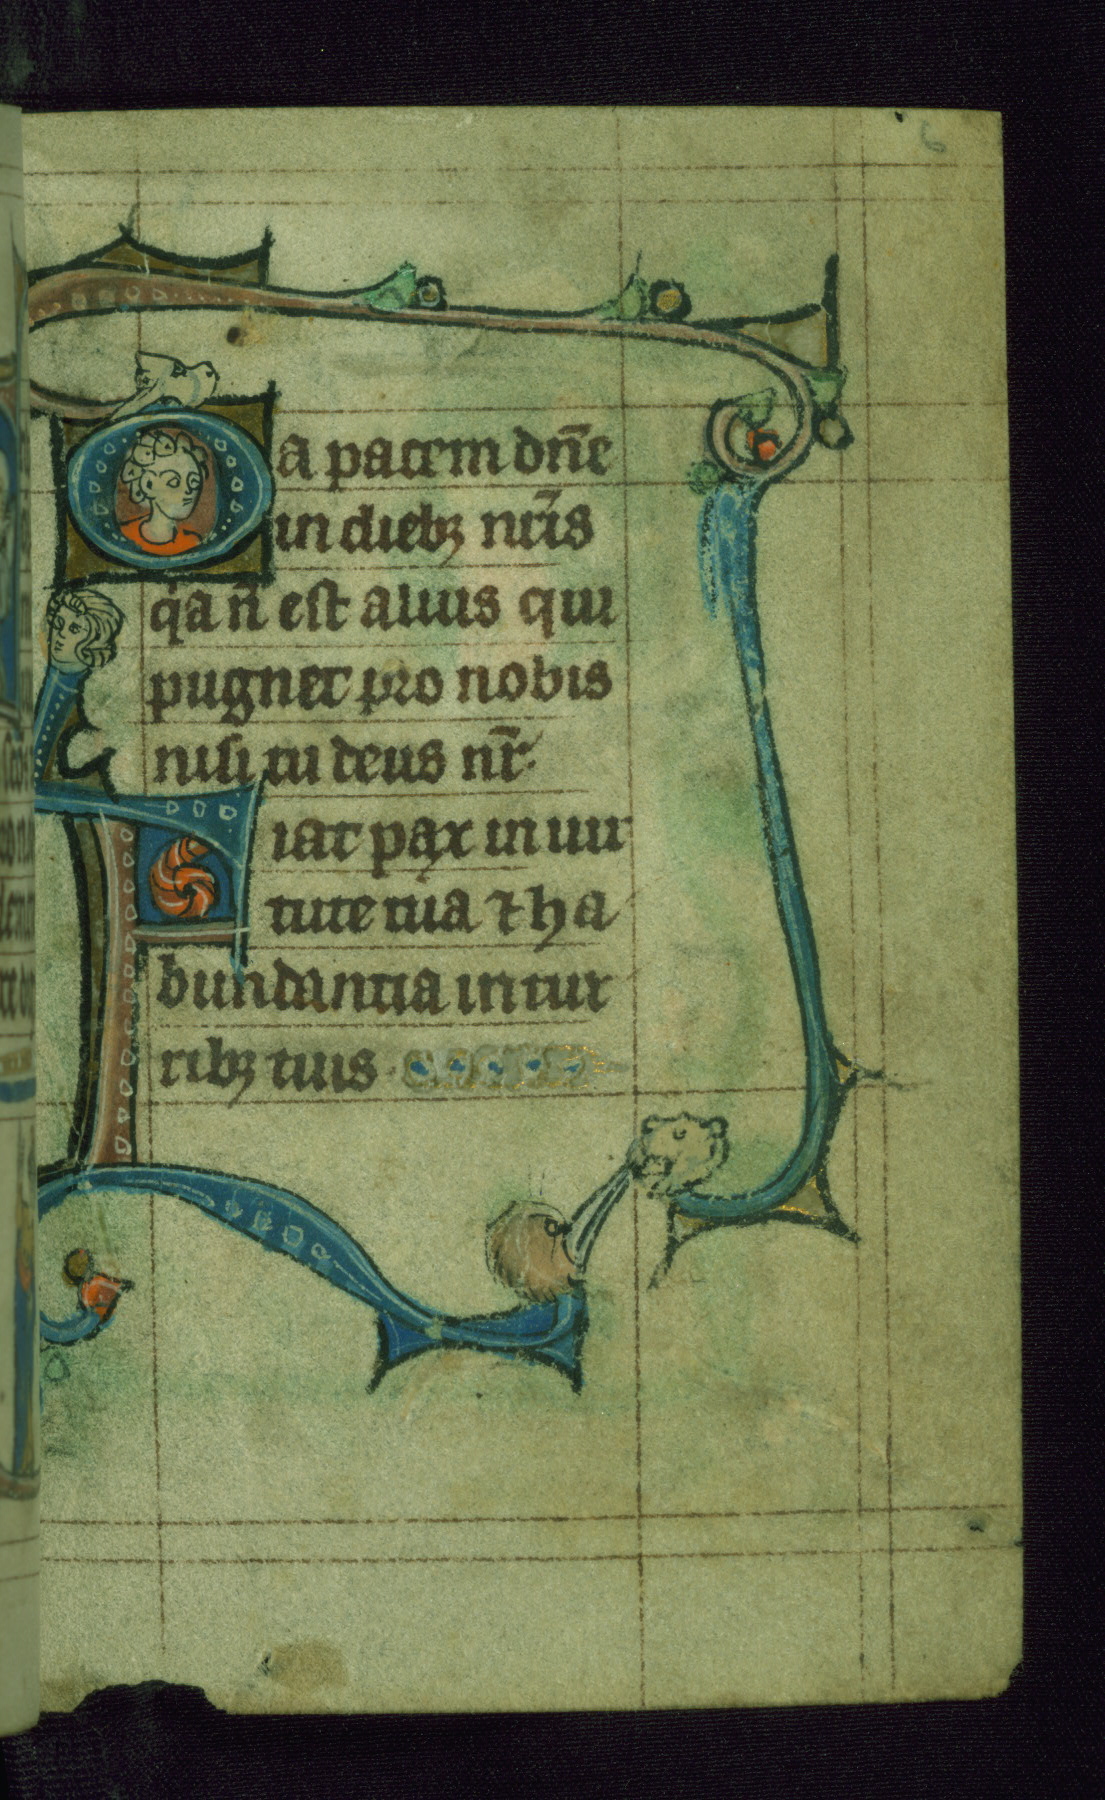 6
Da pacem dn̄e
in diebꝫ nr̄is
q̇a n̄ est alius qui
pugnet pro nobis
nisi tu deus nr̄
Fiat pax in uir
tute tua ⁊ ha
bundantia in tur
ribꝫ tuis